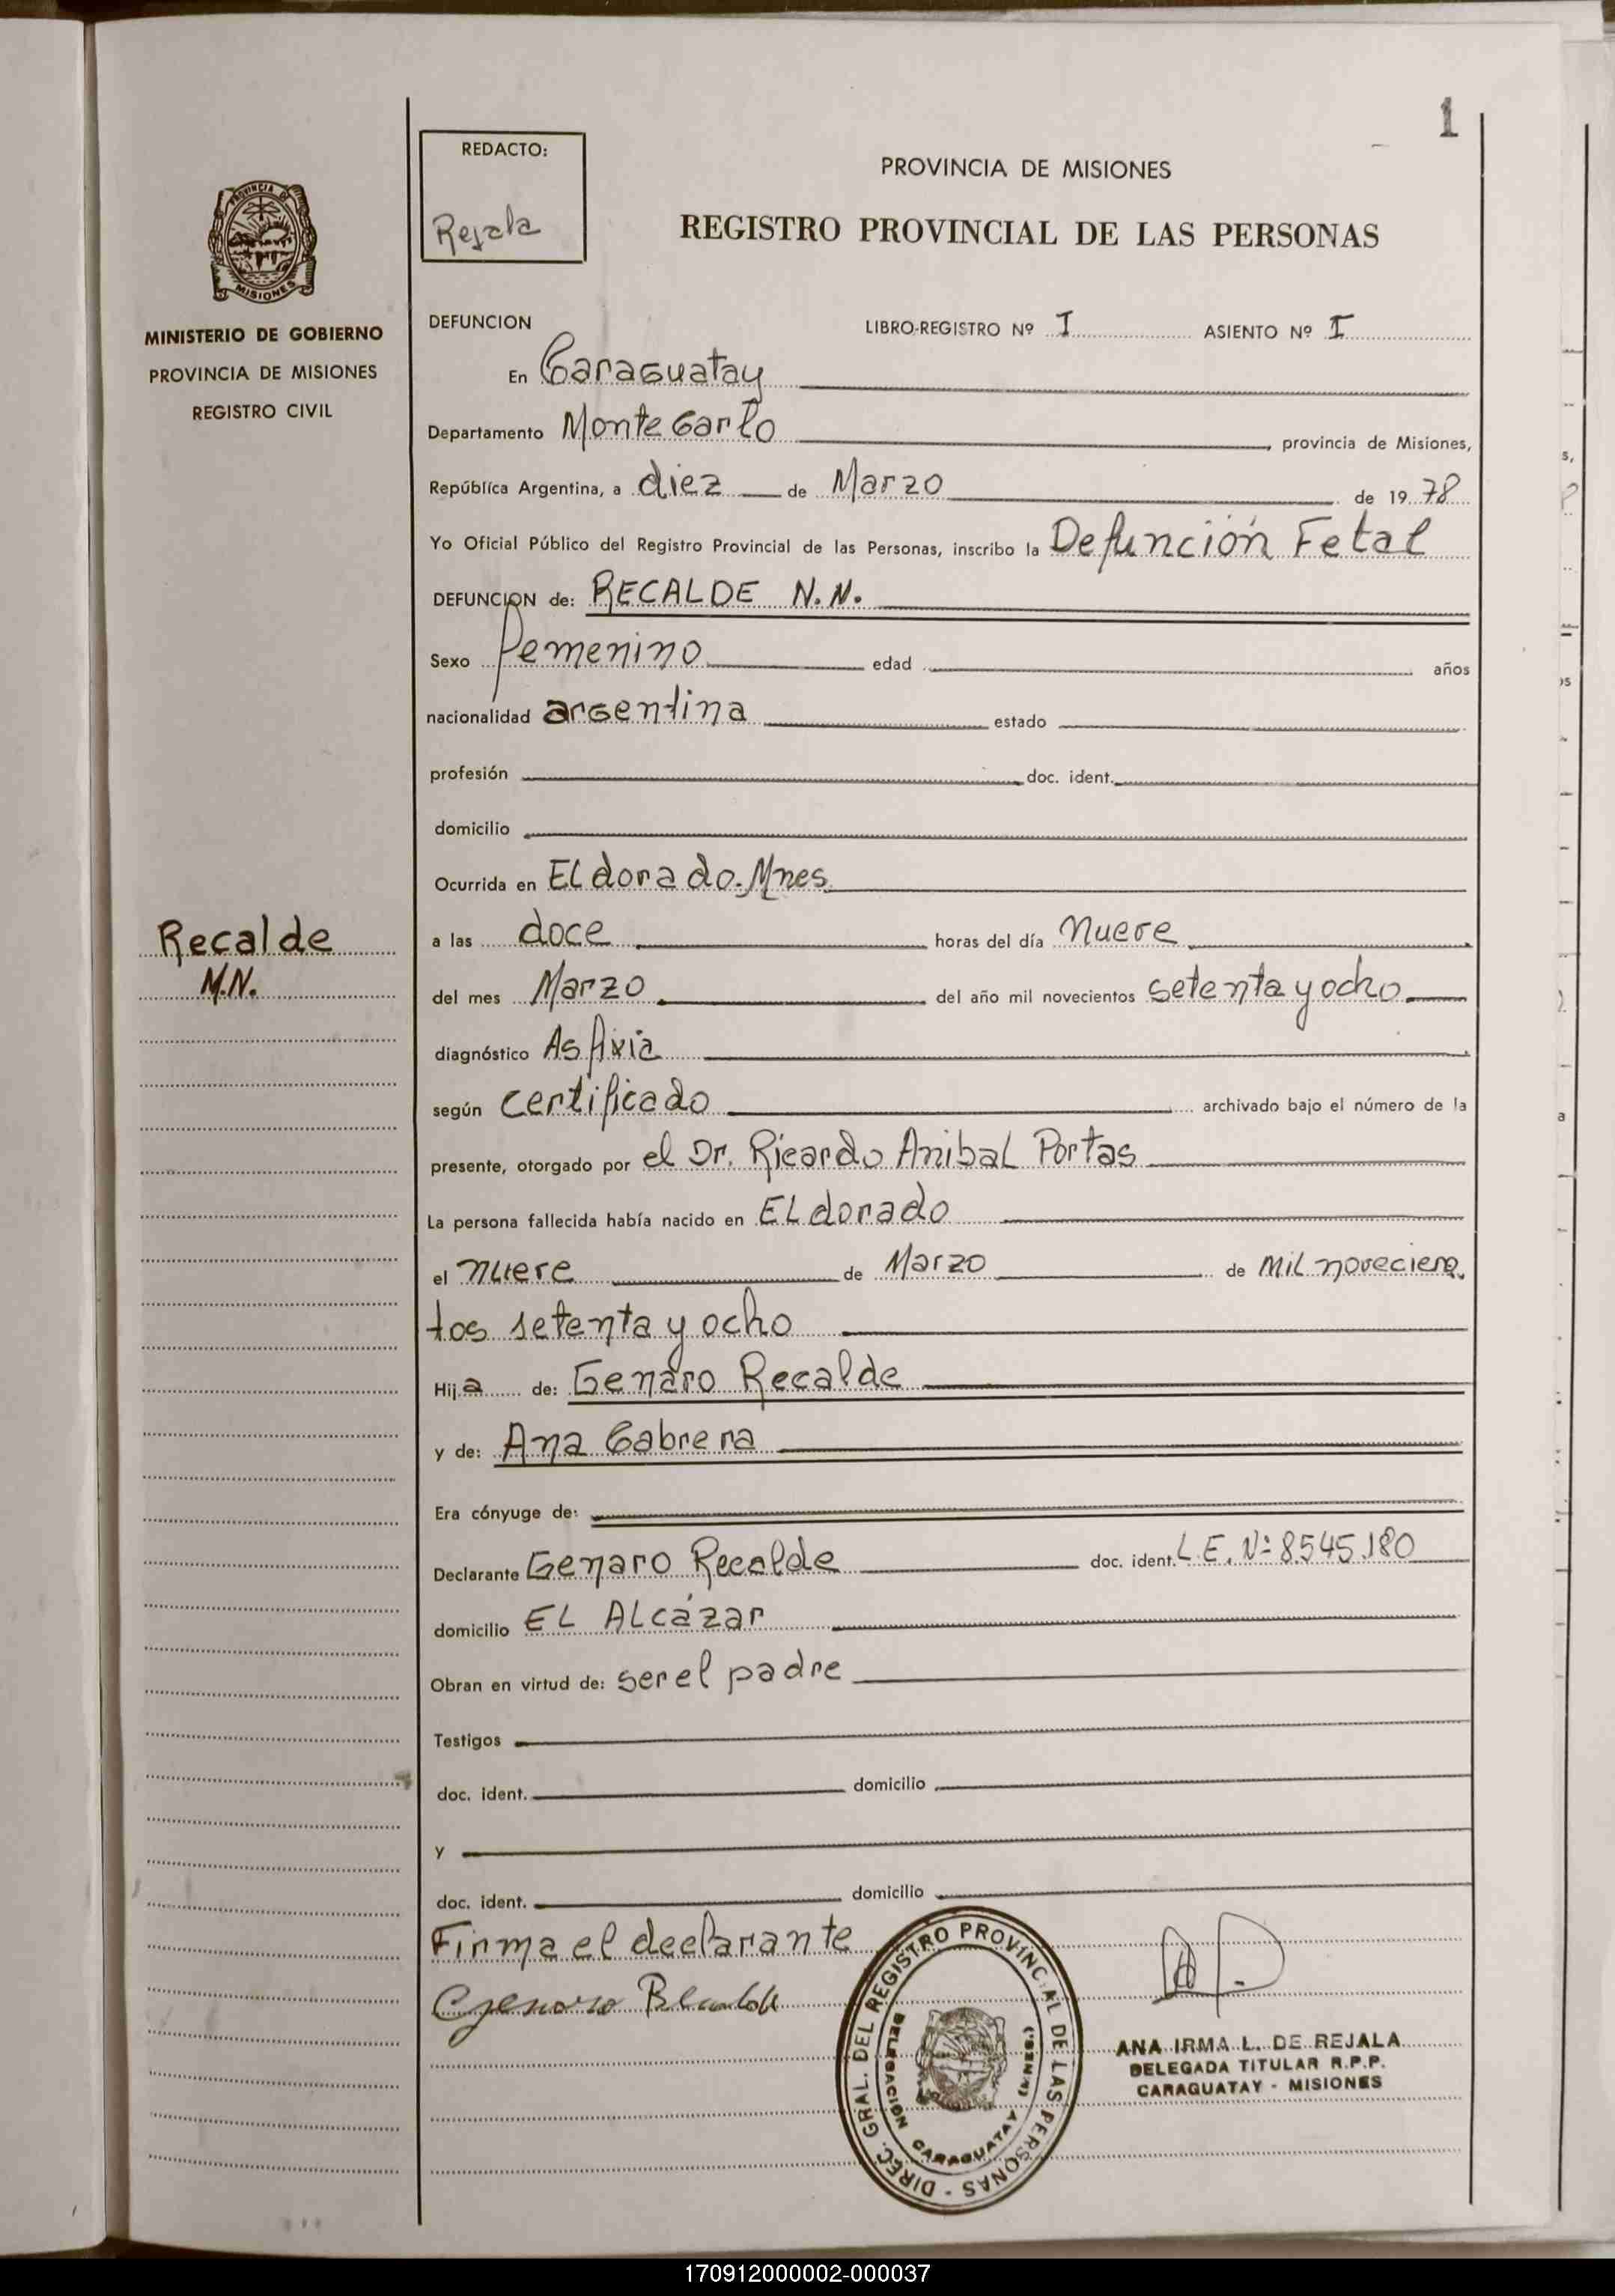 1
REDACTO:
Rejala
PROVINCIA DE MISIONES
REGISTRO PROVINCIAL DE LAS PERSONAS
PROVINCIA DE
MISIONES
MINISTERIO DE GOBIERNO
PROVINCIA DE MISIONES
REGISTRO CIVIL
Recalde
M.N.
DEFUNCION LIBRO-REGISTRO Nº I ASIENTO Nº I
En Caraguatay
Departamento Monte Carlo, provincia de Misiones,
República Argentina, a diez de Marzo de 19 78
Yo Oficial Público del Registro Provincial de las Personas, inscribo la Defunción Fetal
DEFUNCION de: RECALDE N.N.
Sexo femenino edad años
nacionalidad argentina estado
profesión doc. ident.
domicilio
Ocurrida en Eldorado-Mnes.
a las doce horas del día nueve
del mes Marzo del año mil novecientos setenta y ocho
diagnóstico Asfixia
según certificado archivado bajo el número de la
presente, otorgado por el Dr. Ricardo Anibal Portas
La persona fallecida había nacido en Eldorado
el nueve de Marzo de mil novecien
tos setenta y ocho
Hija de: Genaro Recalde
y de: Ana Cabrera
Era cónyuge de:
Declarante Genaro Recalde doc. ident. L.E. Nº 8545180
domicilio EL Alcázar
Obran en virtud de: ser el padre
Testigos
doc. ident. domicilio
y
doc. ident. domicilio
Firma el declarante
Genaro Recalde
DIREC. GRAL. DEL REGISTRO PROVINCIAL DE LAS PERSONAS -
DELEGACION CARAGUATAY (MNES.)
ANA IRMA L. DE REJALA
DELEGADA TITULAR R.P.P.
CARAGUATAY - MISIONES
170912000002-000037